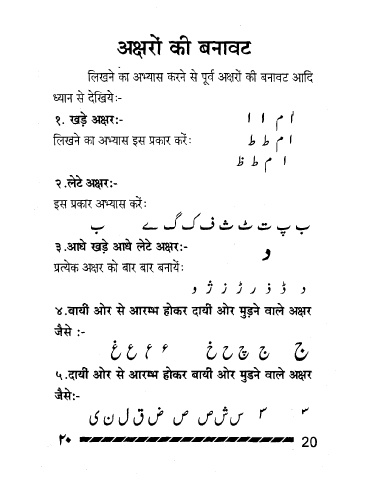 अक्षरों की बनावट
लिखने का अभ्यास करने से पूर्व अक्षरों की बनावट आदि
ध्यान से देखिये:-
१. खड़े अक्षर:- ا ا م أ
लिखने का अभ्यास इस प्रकार करें: ا م ط ط
ا م ط ظ
२.लेटे अक्षर:-
इस प्रकार अभ्यास करें:
ب پ ت ٹ ث ف ک گ ے ب
३.आधे खड़े आधे लेटे अक्षर:- و
प्रत्येक अक्षर को बार बार बनायें:
د ڈ ذ ر ڑ ز ژ و
४.बायीं ओर से आरम्भ होकर दायीं ओर मुड़ने वाले अक्षर
जैसे :-
ح ج چ ح خ ء ع ع غ
५.दायीं ओर से आरम्भ होकर बायीं ओर मुड़ने वाले अक्षर
जैसे:-
س ش ص ص ض ق ل ن ی
٢٠ 20